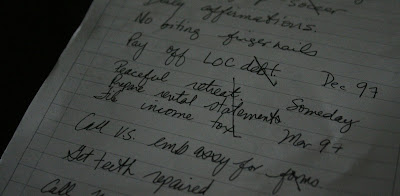 Daily affirmations.
No biting fingernails
Pay off LOC debt. Dec 97
Peaceful retreat Someday
rental statements
income tax Mar 97
Call U.S. embassy for forms.
Get teeth repaired
Call